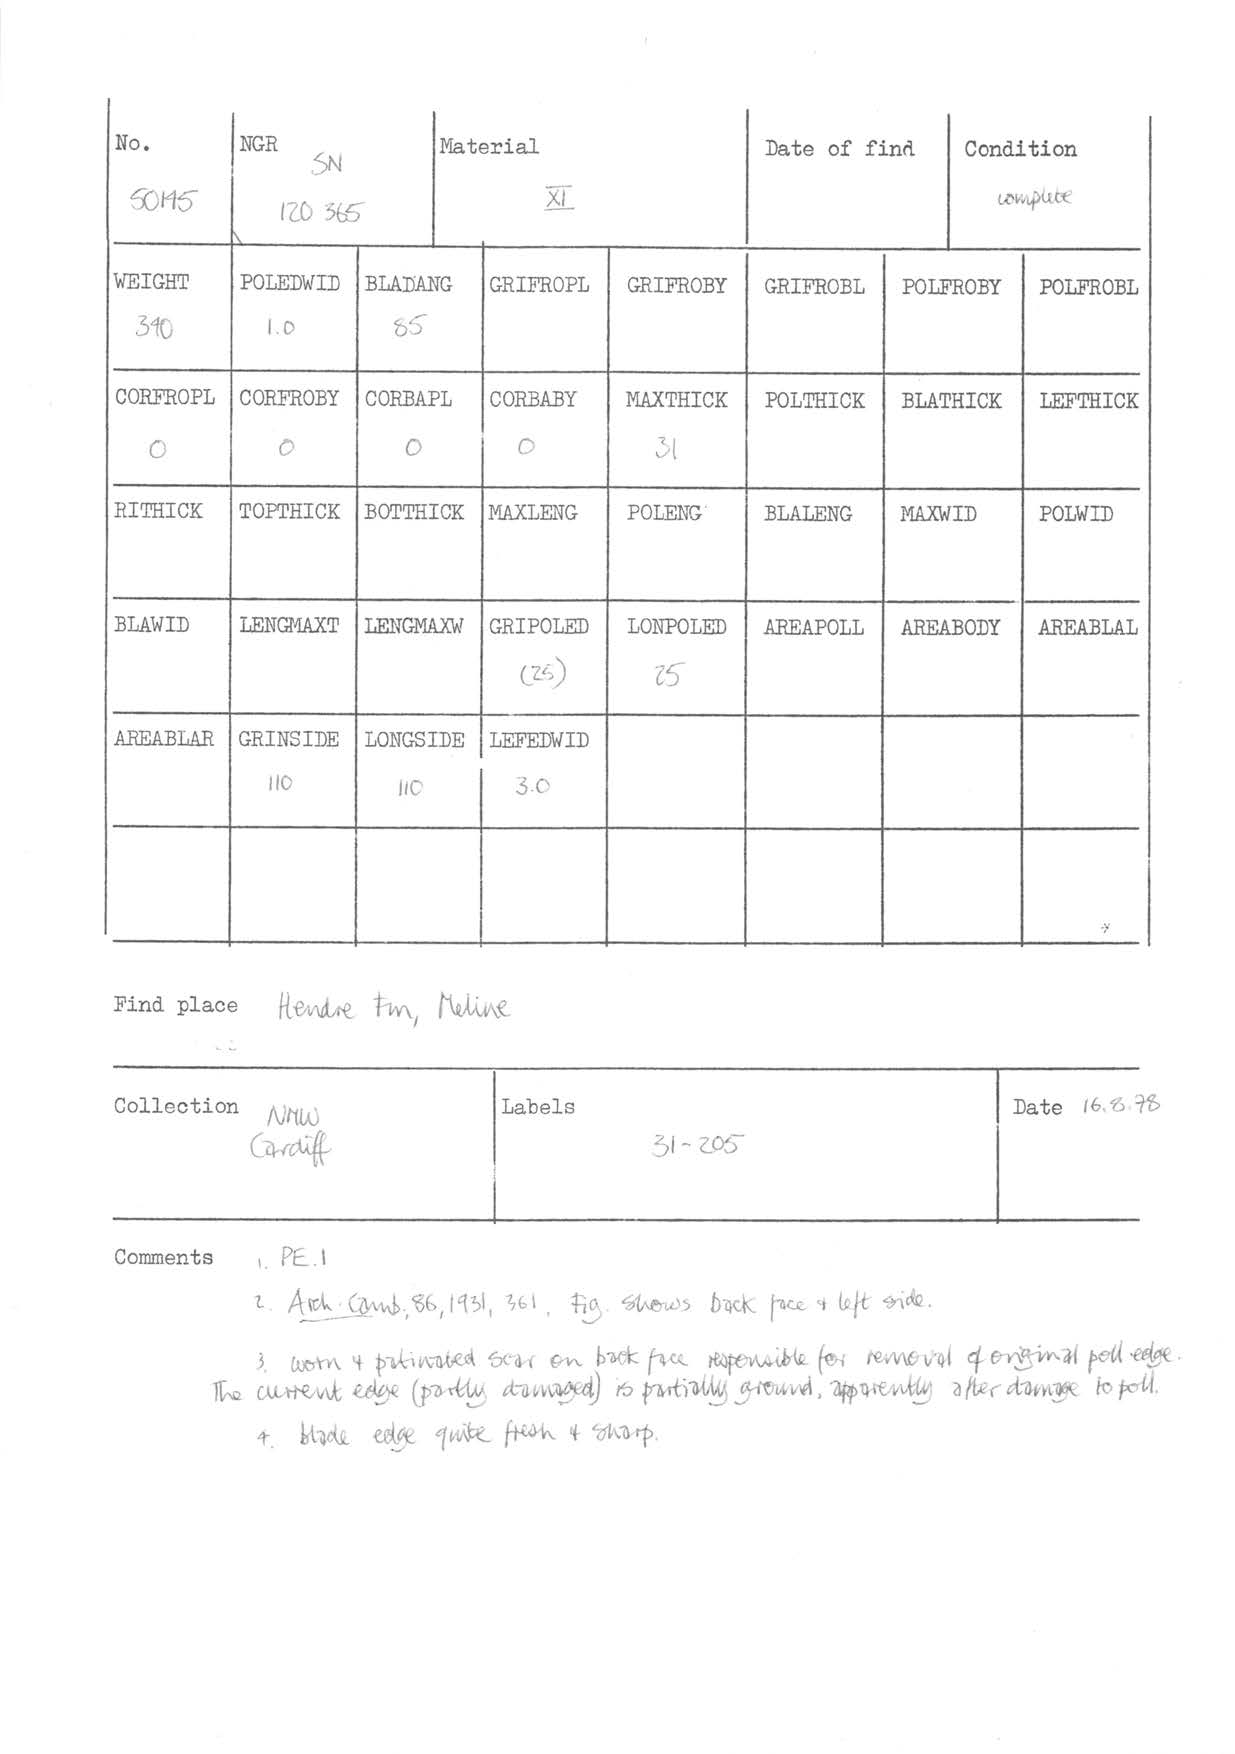 No. NGR Material Date of find Condition
SN
XI complete
120 365
WEIGHT POLEDWID BLADANG GRIFROPL GRIFROBY GRIFROBL POLFROBY POLFROBL
390 1.0 85
CORFROPL CORFROBY CORBAPL CORBABY MAXTHICK POLTHICK BLATHICK LEFTHICK
0 0 0 0 31
RITHICK TOPTHICK BOTTHICK MAXLENG POLENG BLALENG MAXWID POLWID
BLAWID LENGMAXT LENGMAXW GRIPOLED LONPOLED AREAPOLL AREABODY AREABLAL
(25) 25
AREABLAR GRINSIDE LONGSIDE LEFEDWID
110 110 3.0
Find place Hendre Fm, Meline
Collection NMW Labels Date 16.8.78
Cardiff 31-205
Comments 1. PE.1
2. Arch. Camb., 86, 1931, 361. Fig. shows back face & left side.
3. worn & patinated scar on back face responsible for removal of original poll edge.
The current edge (partly damaged) is partially ground, apparently after damage to poll.
4. blade edge quite fresh & sharp.